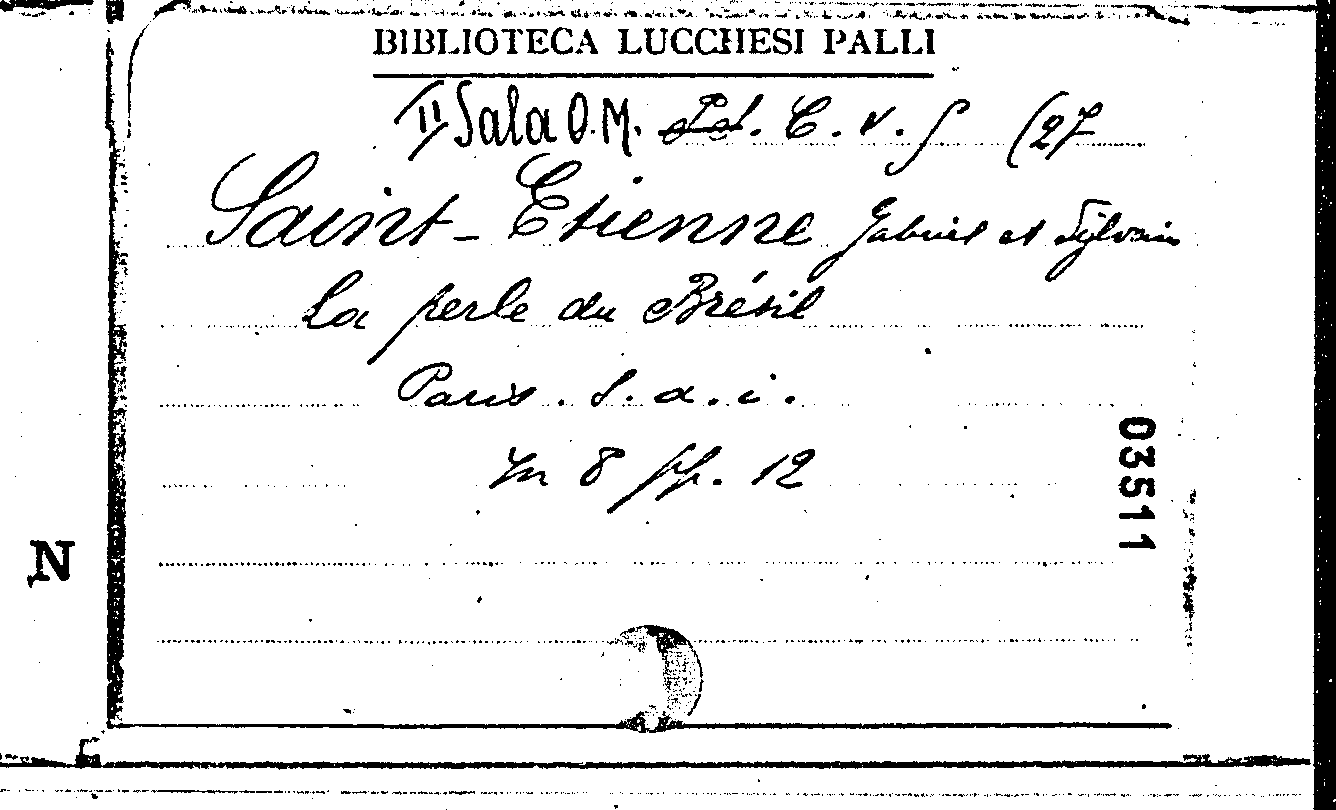 BIBLIOTECA LUCCHESI PALLI
II Sala O.M. C. V. S (27
Saint-Etienne Gabriel et Sylvain
La perle du Brésil
Paris. S. a. i.
In 8 pp. 12
03511
N